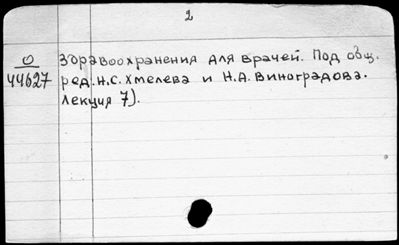 2
О
44627
здравоохранения для врачей. Под общ.
ред. Н.С. Хмелева и Н.А. Виноградова.
Лекция 7).